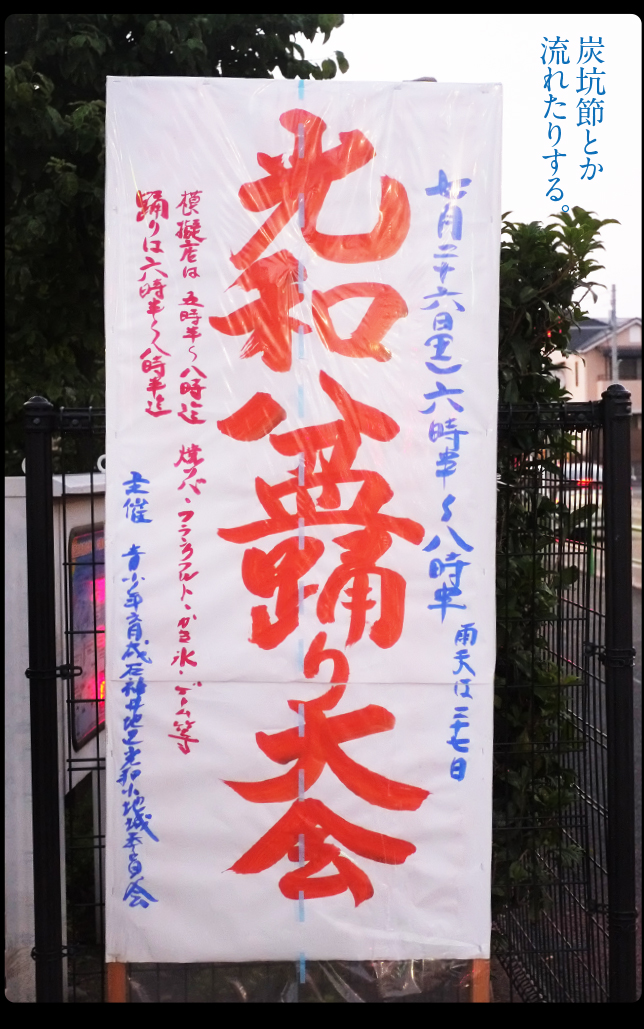 炭坑節とか
流れたりする。
七月二十六日(土)六時半〜八時半
雨天は二十七日
光和盆踊り大会
模擬店は 五時半〜八時迄 焼ソバ・フランクフルト・かき氷・ゲーム等
踊りは六時半〜八時半迄
主催 青少年育成石神井地区光和小地域委員会